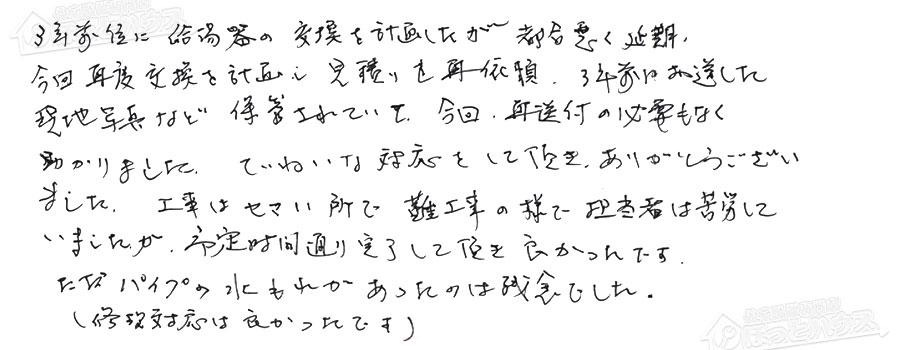 3年前位に給湯器の交換を計画したが都合悪く延期、
今回再度交換を計画し見積りを再依頼。3年前にお送した
現地写真など保管されていて、今回、再送付の必要もなく
助かりました。ていねいな対応をして頂き、ありがとうござい
ました。工事はセマい所で難工事の様で担当者は苦労して
いましたが、予定時間通り完了して頂き良かったです。
ただパイプの水もれがあったのは残念でした。
(修段対応は良かったです)